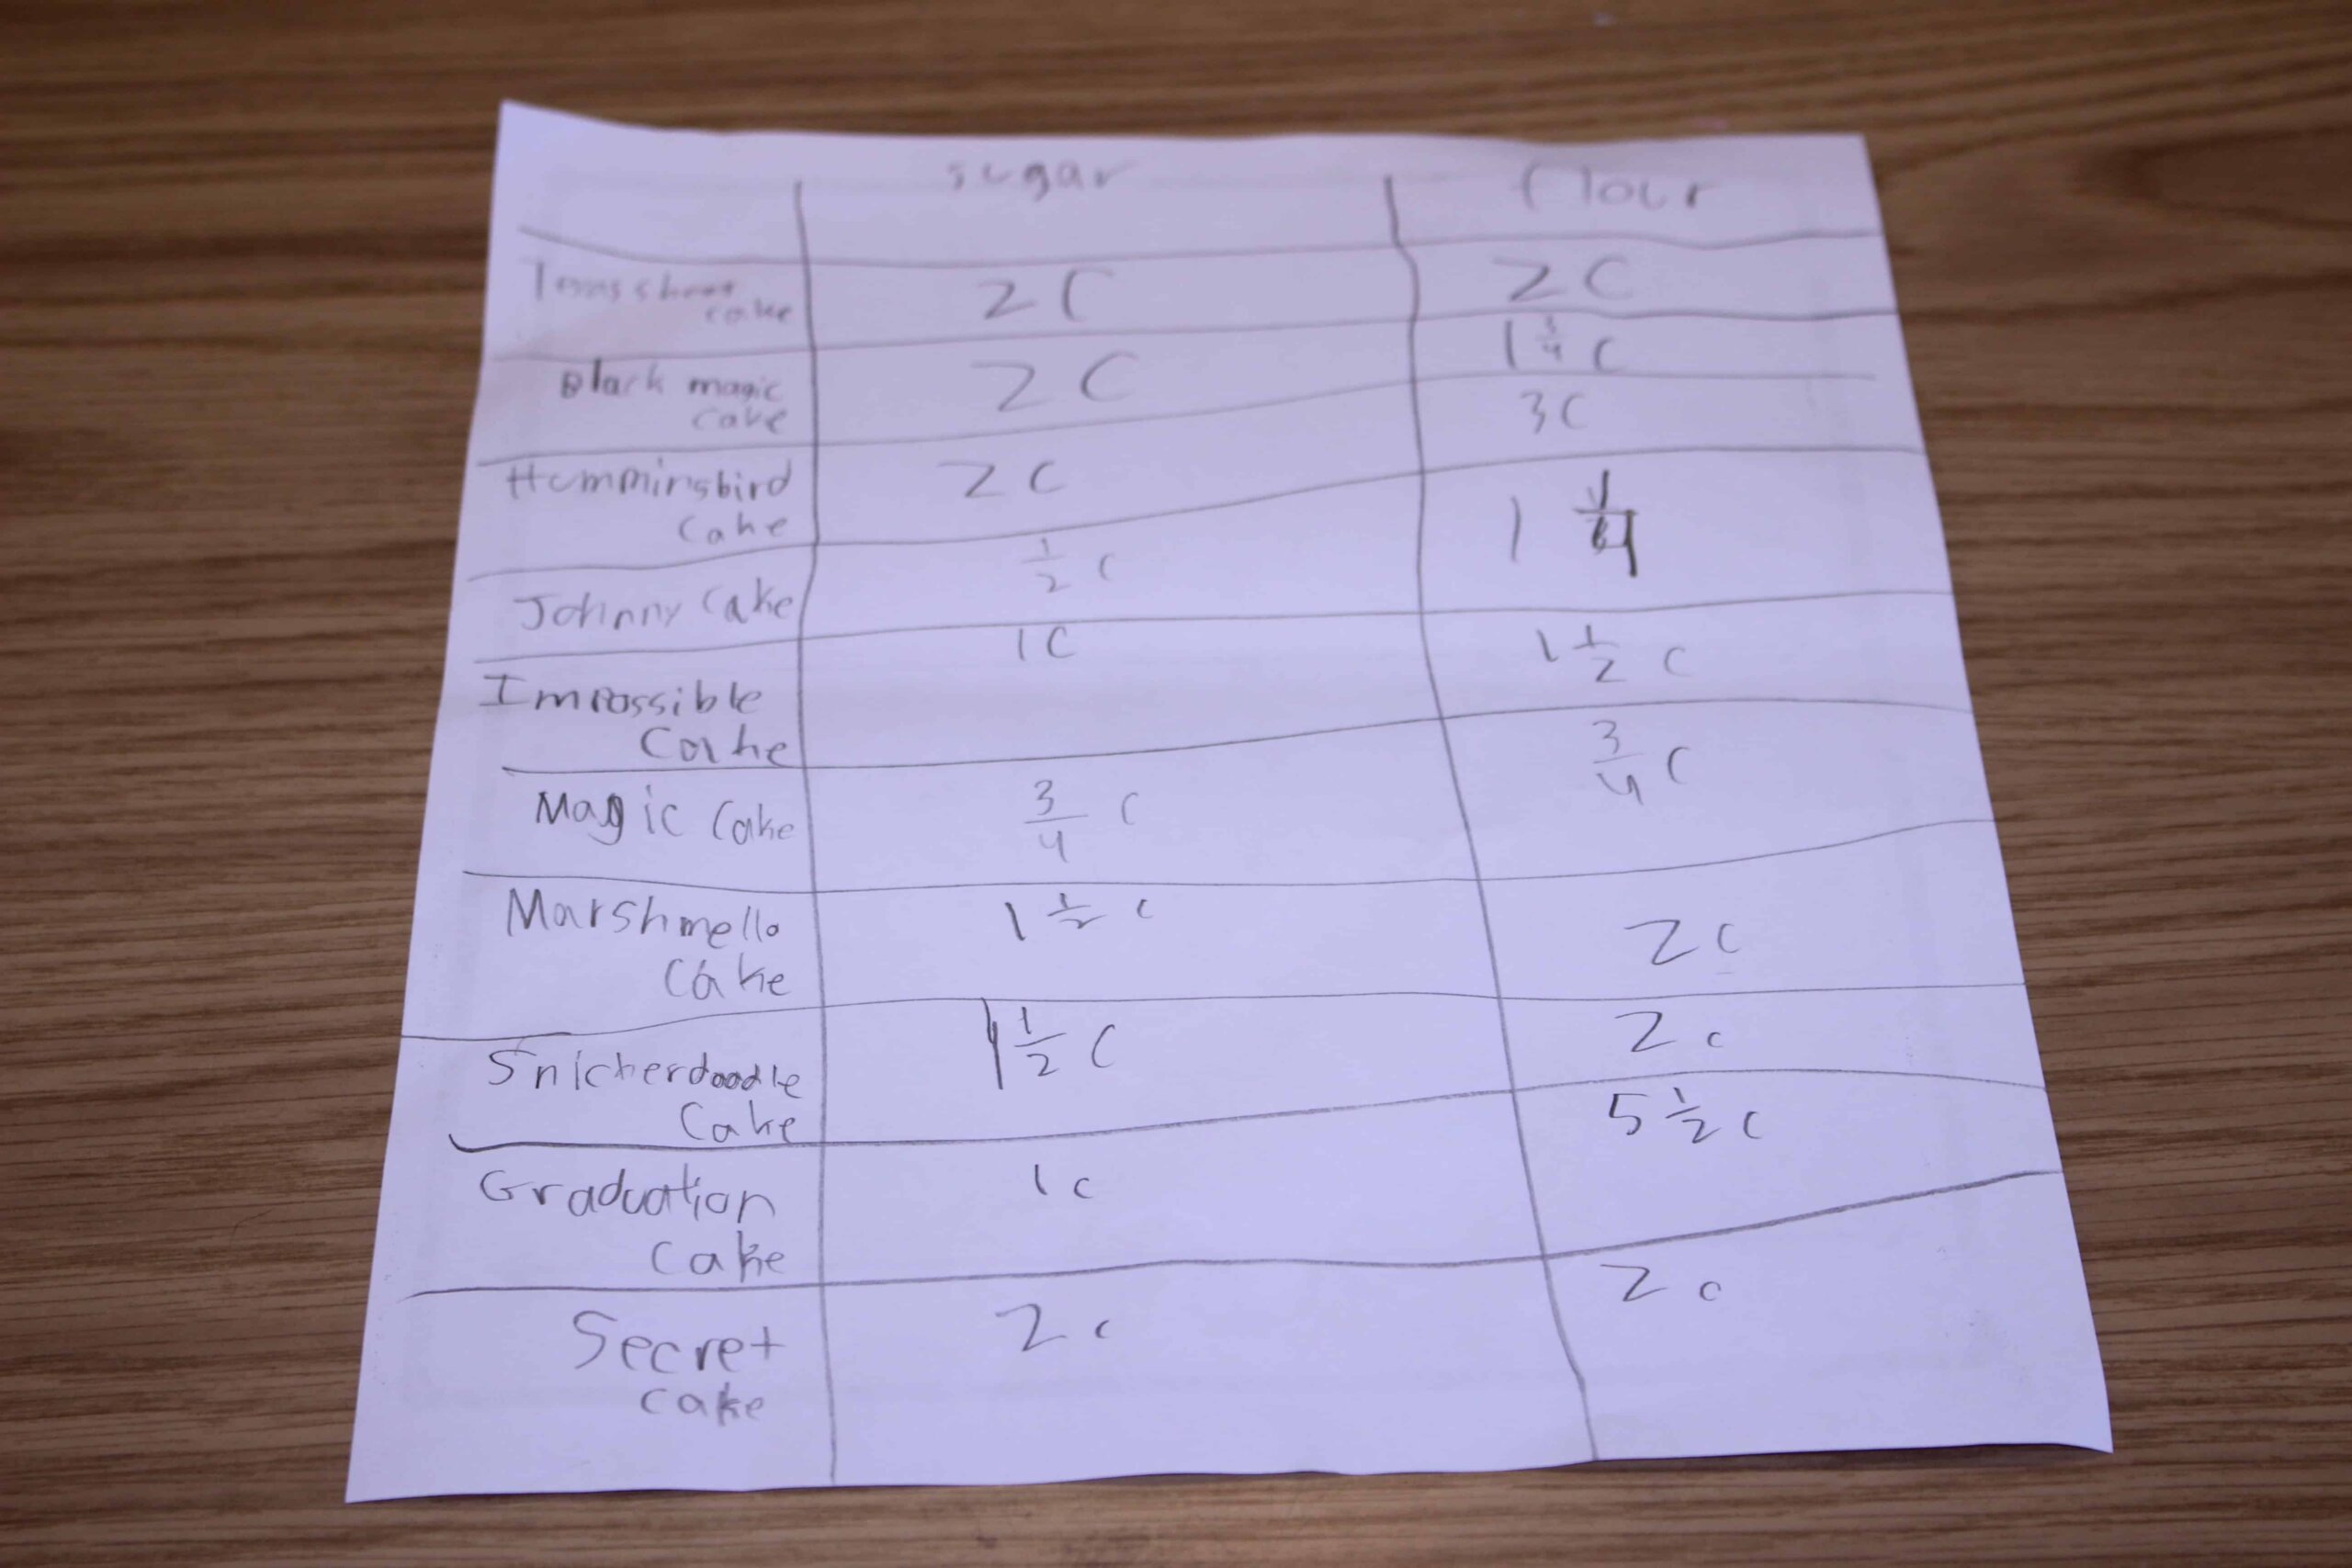 sugar flour
Texas sheet
cake 2 C 2 C
Black magic
cake 2 C 1 3/4 C
Hummingbird
Cake 2 C 3 C
Johnny Cake 1/2 C 1 1/4
Impossible
Cake 1 C 1 1/2 C
Magic Cake 3/4 C 3/4 C
Marshmello
Cake 1 1/2 C 2 C
Snickerdoodle
Cake 1 1/2 C 2 c
Graduation
Cake 1 c 5 1/2 c
Secret
cake 2 c 2 c